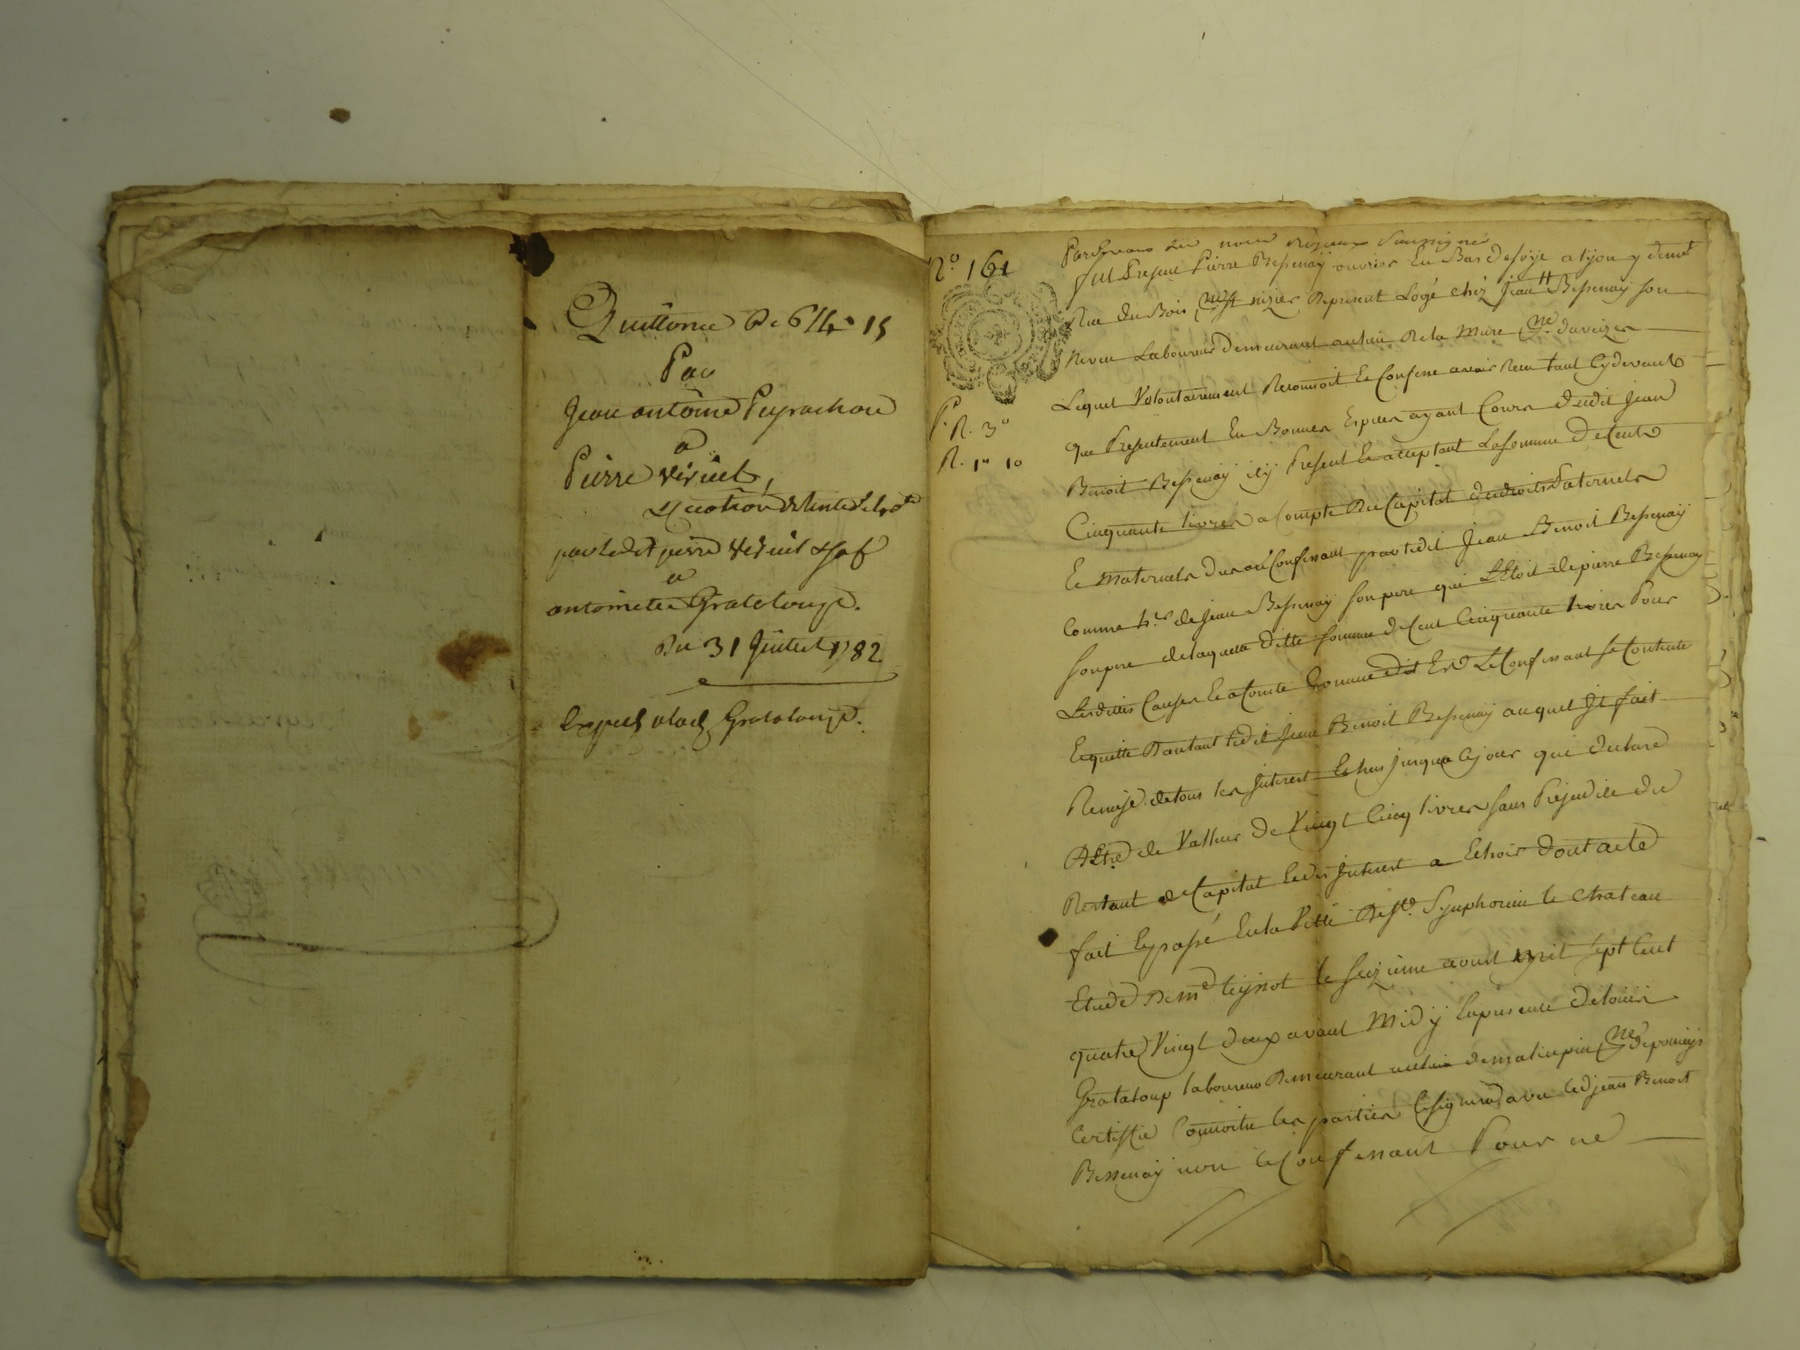 Quittance de 614 15
Par
Jean antoine Peyrachon
a
Pierre Veriel,
& caution
par ledit pierre Veriel & sa f
a
antoinette Grateloup.
Du 31 Juillet 1782
Expedi a lad. Grateloup.
N.o 161
P. R. 3o
R. 1n 10
Par devant Les notaires Royaux Soussignés
fut Present Pierre Bessenay ouvrier En Bas de soye a lyon y demt
Rue du Bois St nizier De present Logé chéz Jean Bt Bessenay son
Neveu Laboureur demeurant au lieu de la Mure
Lequel Volontairement Reconnoit Et Confesse avoir Recu tant Cydevant
que Presentement En Bonnes Especes ayant Cours dudit Jean
Benoit Bessenay icy Present Et acceptant La somme de Cent
Cinquante livres a Compte Du Capital des droits Paternels
Et Maternels dus au Confessant par ledit Jean Benoit Bessenay
Comme h.er de Jean Bessenay son pere qui L'Etoit de pierre Bessenay
son pere de laquelle ditte somme de Cent Cinquante livres Pour
Lesdittes Causes Et a Comte Comme dit Est Le Confessant se Contente
Et quitte D'autant ledit Jean Benoit Bessenay auquel Il fait
Remise de tous les Interest Echus jusqua Ce jour qui declare
Etre de Valleur De Vingt Cinq livres sans Prejudice du
Restant de Capital Et des Interest a Echoir dont acte
fait Et passé En la Ville De St. Symphorien le Chateau
Etude De me le seizieme aoust mil sept Cent
quatre Vingt deux avant Midy En presence de
Grataloup laboureur Demeurant au lieu de
Certiffie Connoitre les parties Et signera avec led jean Benoit
Bessenay non le Confessant Pour ne